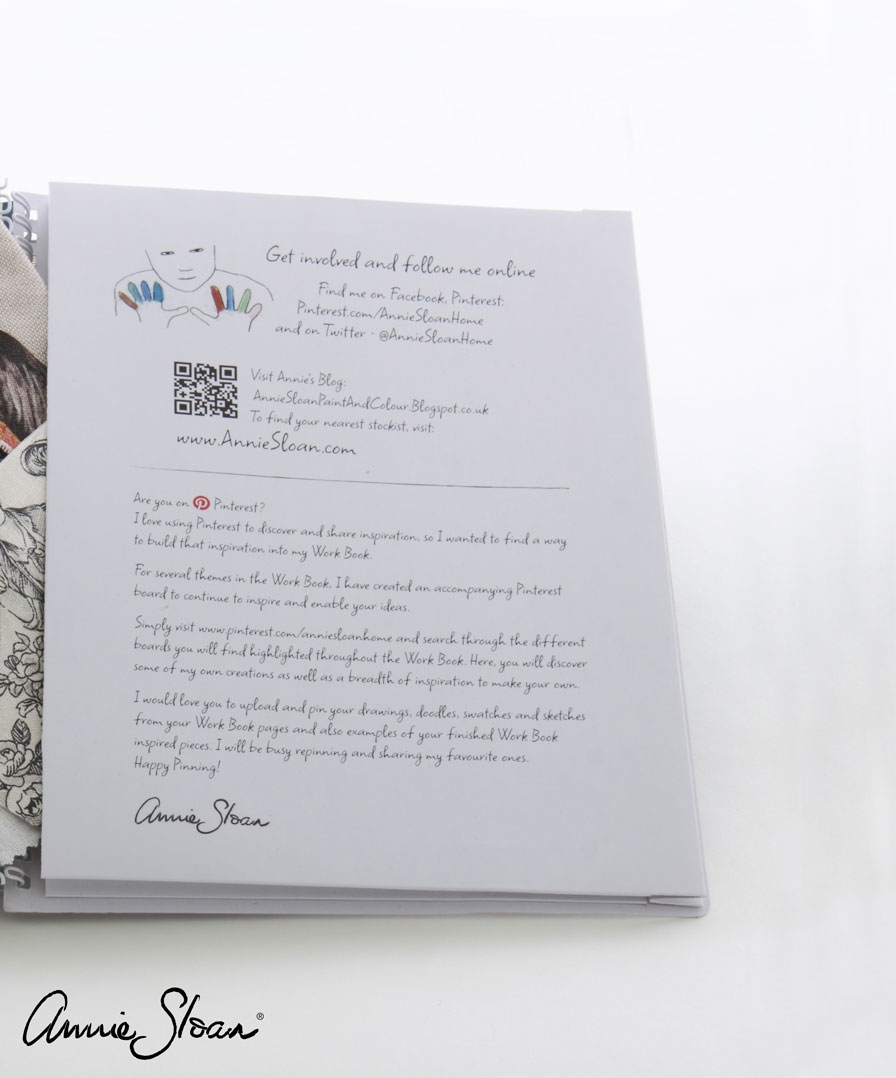 Get involved and follow me online
Find me on Facebook, Pinterest:
Pinterest.com/AnnieSloanHome
and on Twitter - @AnnieSloanHome
Visit Annie's Blog:
AnnieSloanPaintAndColour.Blogspot.co.uk
To find your nearest stockist, visit:
www.AnnieSloan.com
Are you on Pinterest?
I love using Pinterest to discover and share inspiration, so I wanted to find a way
to build that inspiration into my Work Book.
For several themes in the Work Book, I have created an accompanying Pinterest
board to continue to inspire and enable your ideas.
Simply visit www.pinterest.com/anniesloanhome and search through the different
boards you will find highlighted throughout the Work Book. Here, you will discover
some of my own creations as well as a breadth of inspiration to make your own.
I would love you to upload and pin your drawings, doodles, swatches and sketches
from your Work Book pages and also examples of your finished Work Book
inspired pieces. I will be busy repinning and sharing my favourite ones.
Happy Pinning!
Annie Sloan
Annie Sloan®